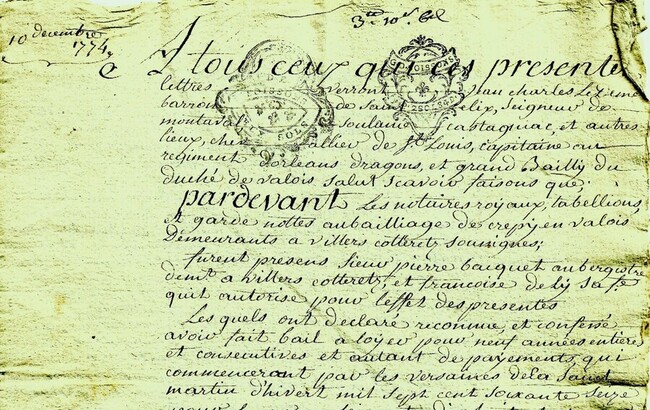 10 decembre
1774
A tous ceux qui ces presentes
lettres verront charles
barron de Saint felix, Seigneur de
montava Soulans castagnac, et autres
lieux, chevallier de St Louis, capitaine au
regiment Dorleans dragons, et grand Bailly du
duché de valois salut scavoir faisons que;
pardevant Les nottaires royaux, tabellions,
et garde nottes aubailliage de crepy en valois
Demeurants a villers cotterets soussignes;
furent presens Sieur pierre bacquet aubergiste
demt a villers cotterets, et francoise de sa fe
quil autorise pour leffet des presentes
Les quels ont declaré reconnu, et confessé
avoir fait bail a loyer pour neuf années entieres
et consecutives et autant de payements, qui
commenceront par les versaines de la Saint
martin dhivert mil sept cent soixante seize